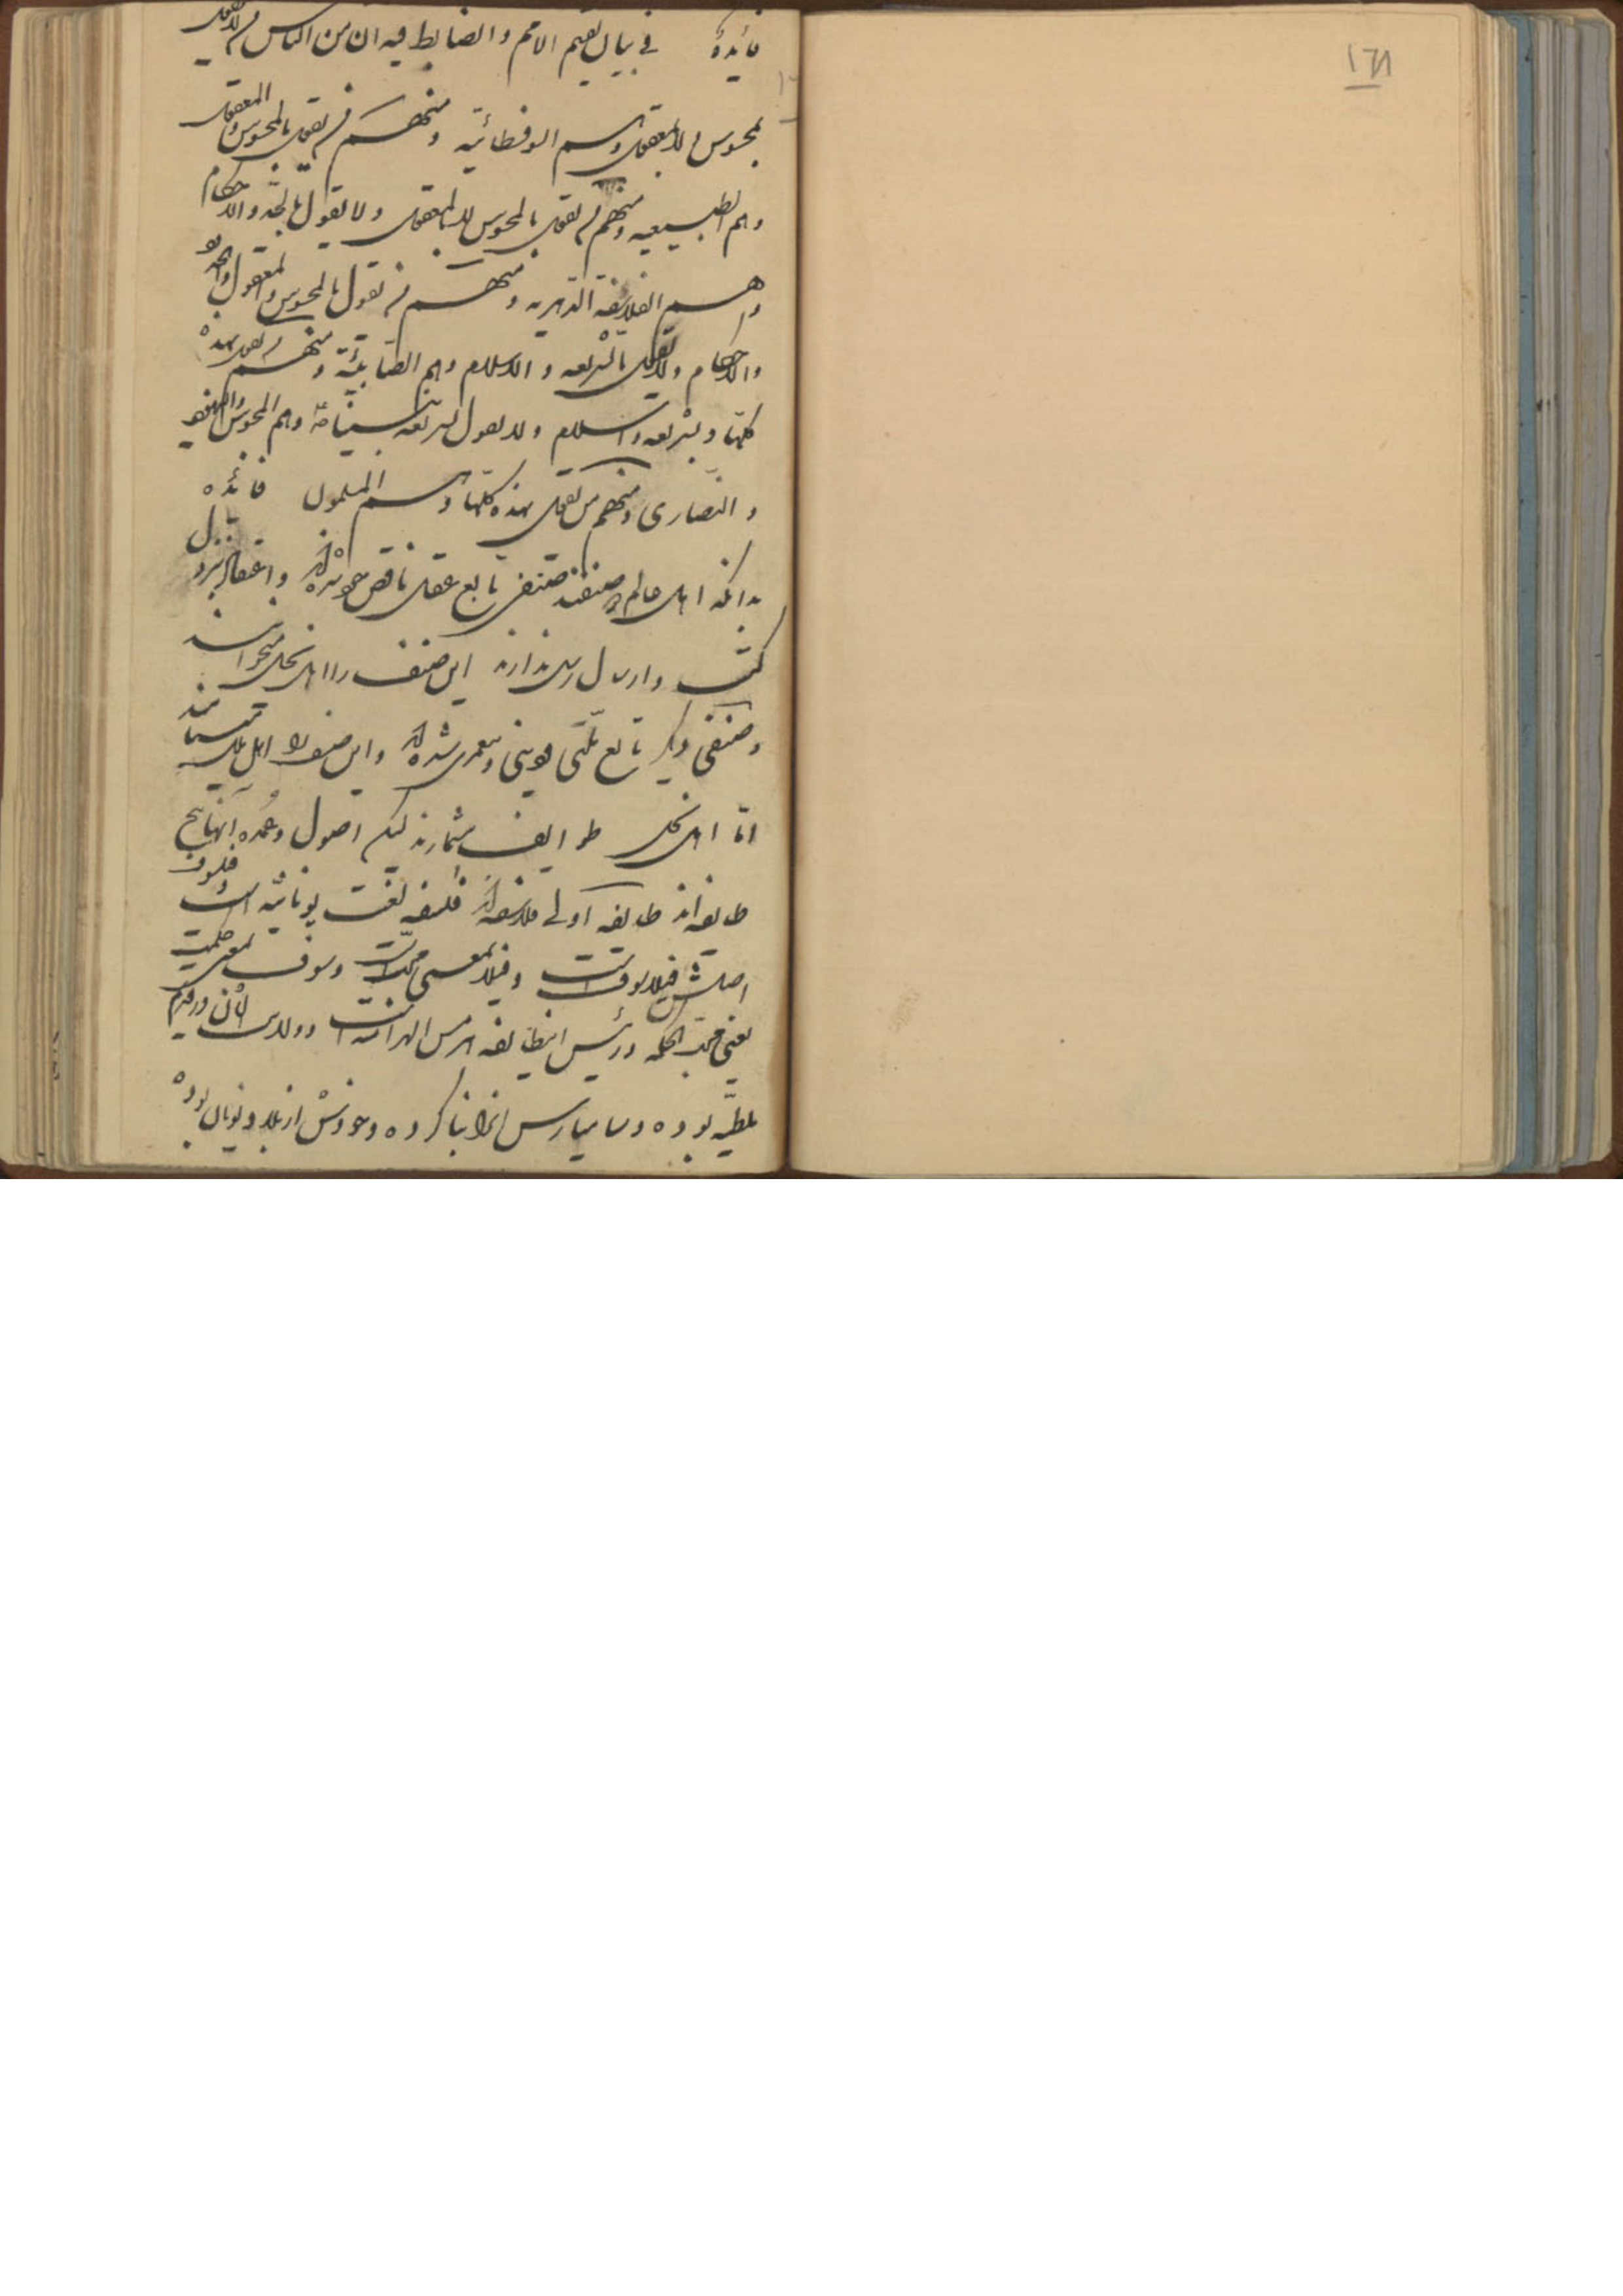 ١٦٨
فائدة في بيان تقسيم الامم والضابط فيه ان من الناس من لا يقول
بمحسوس ولا بمعقول وهم السوفسطائية ومنهم من يقول بالمحسوس والمعقول
وهم الطبيعيه ومنهم من يقول بالمحسوس لا بالمعقول ولا يقول بالحد والاحكام
وهم الفلاسفة الدهريه ومنهم من يقول بالمحسوس والمعقول والحدود
والاحكام ولا يقول بالشريعه والاسلام وهم الصابئة ومنهم من يقول بهذه
كلها وبشريعه واسلام ولا يقول بشريعة نبينا وهم المجوس واليهود
والنصارى ومنهم من يقول بهذه كلها وهم المسلمون فائده
بدانکه اهل عالم دو صنفند صنفی تابع عقل ناقص خود شده‌اند و اعتقاد بنزول
کتب و ارسال رسل ندارند این صنف را اهل نحل میخوانند
و صنفی دیگر تابع ملتی و دینی و پیغمبری شده‌اند و این صنف را اهل ملل مینامند
اما اهل نحل طوایف بیشمارند لیکن اصول و عمده آنها پنج
طایفه‌اند طایفه اولی فلاسفه‌اند فلسفه لغت یونانیه است و فیلسوف
اصلش فیلاسوف است و فیلا بمعنی محب است و سوف بمعنی حکمت
یعنی محب الحکمه و رئیس این طایفه هرمس الهرامسه است و ولادت آن در قدیم
ملطیه بوده و آنرا بنا کرده و خودش از بلاد یونان بوده